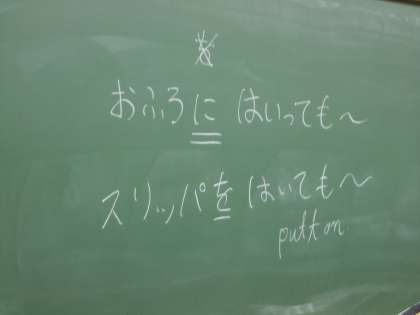 おふろに はいっても～
スリッパを はいても～
putt on